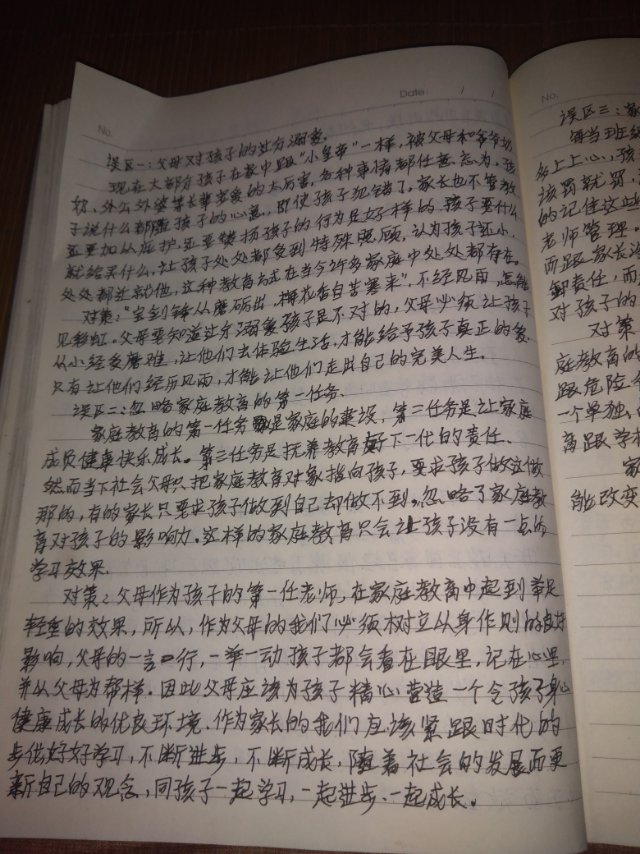 Date: / /
No.
误区一:父母对孩子的过分溺爱.
现在大部分孩子在家中跟"小皇帝"一样,被父母和爷爷奶
奶、外公外婆等长辈宠爱的太厉害,各种事情都任意忘为,孩
子说什么都随孩子的心意,即使孩子犯错了,家长也不管教
还更加从庇护,还要赞扬孩子的行为是好样的.孩子要什么
就给买什么,让孩子处处都受到特殊照顾,认为孩子还小,
处处都迁就他,这种教育方式在当今许多家庭中处处都存在.
对策:"宝剑锋从磨砺出,梅花香自苦寒来",不经风雨,怎能
见彩虹。父母要知道过分溺爱孩子是不对的,父母必须让孩子
从小经受磨难,让他们去体验生活,才能给予孩子真正的爱.
只有让他们经历风雨,才能让他们走出自己的完美人生.
误区二:忽略家庭教育的第一任务.
家庭教育的第一任务是家庭的建设,第二任务是让家庭
成员健康快乐成长。第三任务是抚养教育好下一代的责任.
然而当下社会父母只把家庭教育对象指向孩子,要求孩子做这做
那的,有的家长只要求孩子做到自己却做不到,忽略了家庭教
育对孩子的影响力.这样的家庭教育只会让孩子没有一点的
学习效果.
对策:父母作为孩子的第一任老师,在家庭教育中起到举足
轻重的效果,所以,作为父母的我们必须树立从身作则的良好
影响,父母的一言一行,一举一动孩子都会看在眼里,记在心里,
并从父母为榜样。因此父母应该为孩子精心营造一个令孩子身心
健康成长的优良环境.作为家长的我们应该紧跟时代的
步伐好好学习,不断进步,不断成长,随着社会的发展而更
新自己的观念,同孩子一起学习,一起进步、一起成长。
No.
误区三:家
每当班级
乡上上心,孩
该罚就罚,
的记住这些
老师管理。
而跟家长没
卸责任,而
对孩子的
对策
庭教育的
跟危险
一个单独
育跟学校
家
能改变